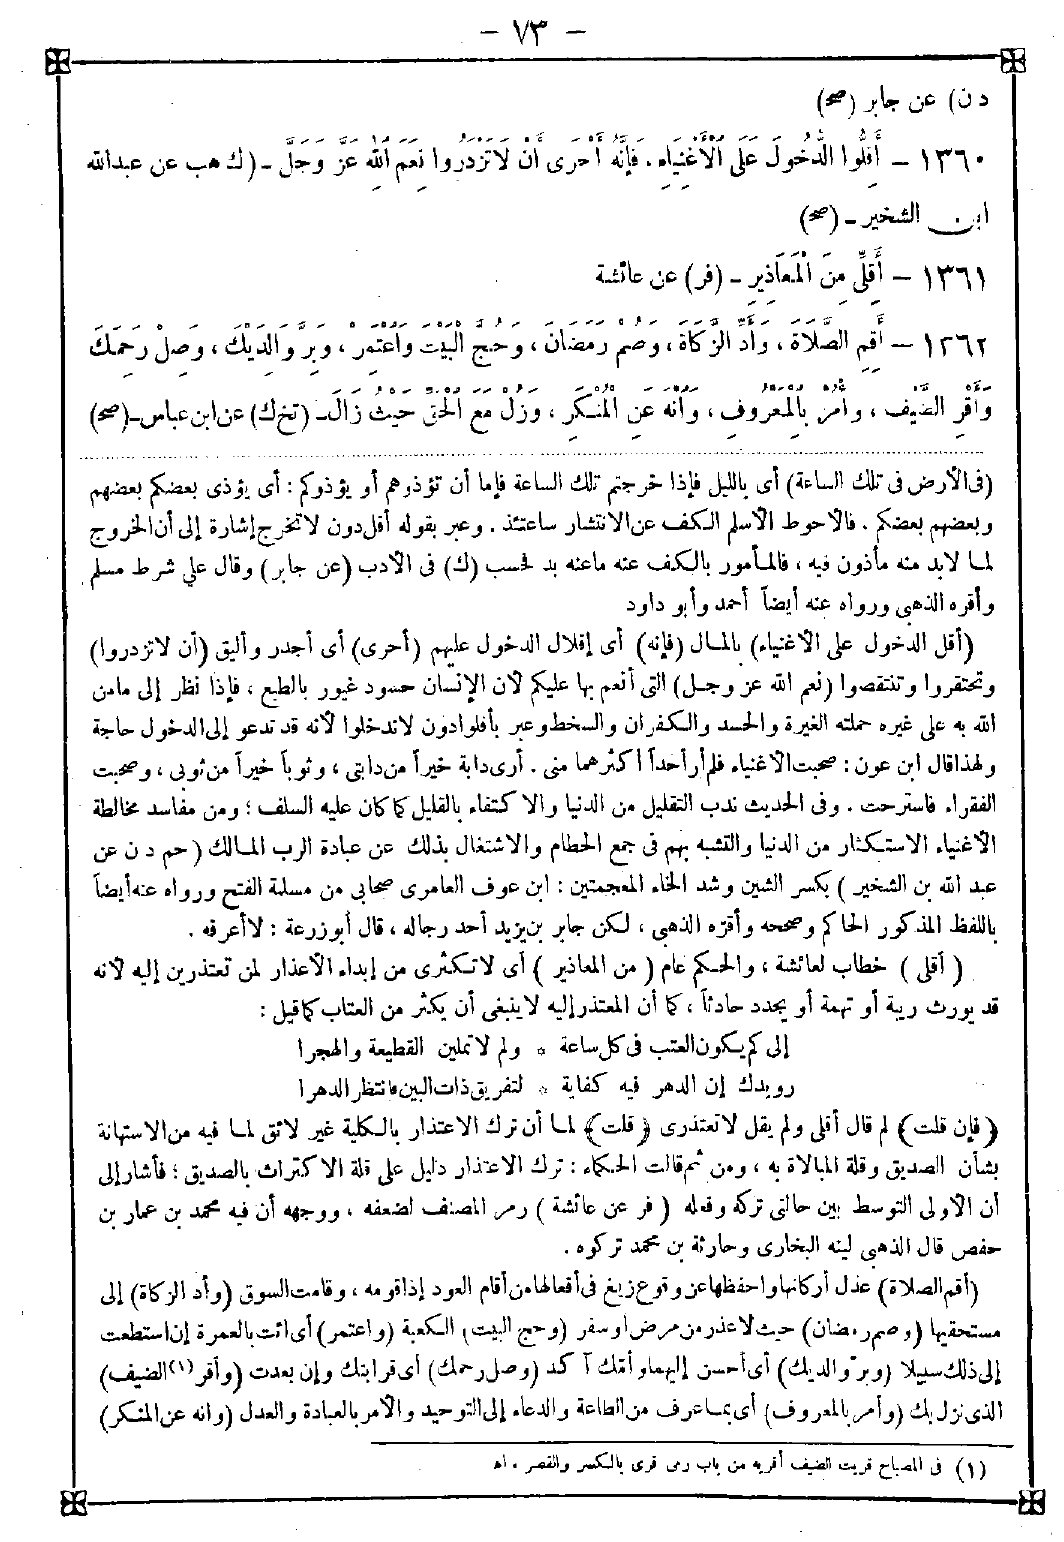 — ٧٣ —
د ن) عن جابر (صح)
١٣٦٠ — أَقِلُّوا الدُّخُولَ عَلَى الْأَغْنِيَاءِ. فَإِنَّهُ أَحْرَى أَنْ لَا تَزْدَرُوا نِعَمَ اللّٰهِ عَزَّ وَجَلَّ - (ك هب عن عبدالله
ابن الشخير - (صح)
١٣٦١ — أَقِلِّى مِنَ الْمَعَاذِيرِ - (فر) عن عائشة
١٣٦٢ — أَقِمِ الصَّلَاةَ ، وَأَدِّ الزَّكَاةَ ، وَصُمْ رَمَضَانَ ، وَحُجَّ الْبَيْتَ وَاعْتَمِرْ ، وَبِرَّ وَالِدَيْكَ ، وَصِلْ رَحِمَكَ
وَأَقْرِ الضَّيْفَ ، وَأْمُرْ بِالْمَعْرُوفِ ، وَانْهَ عَنِ الْمُنْكَرِ ، وَزُلْ مَعَ الْحَقِّ حَيْثُ زَالَ - (تخ ك) عن ابن عباس - (صح)
(فى الأرض فى تلك الساعة) أى بالليل فإذا خرجتم تلك الساعة فإما أن تؤذوهم أو يؤذوكم : أى يؤذى بعضكم بعضهم
وبعضهم بعضكم . فالأحوط الأسلم الكف عن الانتشار ساعتئذ . وعبر بقوله أقل دون لا تخرج إشارة إلى أن الخروج
لما لابد منه مأذون فيه ، فالمأمور بالكف عنه ماعنه بد فحسب (ك) فى الأدب (عن جابر) وقال على شرط مسلم
وأقره الذهبى ورواه عنه أيضاً أحمد وأبو داود
(أقل الدخول على الأغنياء) بالمال (فإنه) أى إقلال الدخول عليهم (أحرى) أى أجدر وأليق (أن لا تزدروا)
وتحتقروا وتنتقصوا (نعم الله عز وجل) التى أنعم بها عليكم لأن الإنسان حسود غيور بالطبع ، فإذا نظر إلى مامن
الله به على غيره حملته الغيرة والحسد والكفران والسخط وعبر بأقلوا دون لا تدخلوا لأنه قد تدعو إلى الدخول حاجة
ولهذا قال ابن عون : صحبت الأغنياء فلم أر أحداً أكثر هما منى . أرى دابة خيراً من دابتى ، وثوباً خيراً من ثوبى ، وصحبت
الفقراء فاسترحت . وفى الحديث ندب التقليل من الدنيا والاكتفاء بالقليل كما كان عليه السلف ؛ ومن مفاسد مخالطة
الأغنياء الاستكثار من الدنيا والتشبه بهم فى جمع الحطام والاشتغال بذلك عن عبادة الرب المالك (حم د ن عن
عبد الله بن الشخير ) بكسر الشين وشد الخاء المعجمتين : ابن عوف العامرى صحابى من مسلمة الفتح ورواه عنه أيضاً
باللفظ المذكور الحاكم وصححه وأقره الذهبى ، لكن جابر بن يزيد أحد رجاله ، قال أبو زرعة : لا أعرفه .
( أقلى ) خطاب لعائشة ، والحكم عام ( من المعاذير ) أى لا تكثرى من إبداء الأعذار لمن تعتذرين إليه لأنه
قد يورث ريبة أو تهمة أو يجدد حادثاً ، كما أن المعتذر إليه لا ينبغى أن يكثر من العتاب كما قيل :
إلى كم يكون العتب فى كل ساعة * ولم لا تملين القطيعة والهجرا
رويدك إن الدهر فيه كفاية * لتفريق ذات البين فانتظر الدهرا
(فإن قلت) لم قال أقلى ولم يقل لا تعتذرى (قلت) لما أن ترك الاعتذار بالكلية غير لائق لما فيه من الاستهانة
بشأن الصديق وقلة المبالاة به ، ومن ثم قالت الحكماء : ترك الاعتذار دليل على قلة الاكتراث بالصديق ؛ فأشار إلى
أن الأولى التوسط بين حالتى تركه وفعله ( فر عن عائشة ) رمز المصنف لضعفه ، ووجهه أن فيه محمد بن عمار بن
حفص قال الذهبى لينه البخارى وحارثة بن محمد تركوه .
(أقم الصلاة) عدل أركانها واحفظها عن وقوع زيغ فى أفعالها من أقام العود إذا قومه ، وقامت السوق (وأد الزكاة) إلى
مستحقيها (وصم رمضان) حيث لا عذر من مرض أو سفر (وحج البيت) الكعبة (واعتمر) أى ائت بالعمرة إن استطعت
إلى ذلك سبيلا (وبر والديك) أى أحسن إليهما وأمك آكد (وصل رحمك) أى قرابتك وإن بعدت (وأقر (١) الضيف)
الذى نزل بك (وأمر بالمعروف) أى بما عرف من الطاعة والدعاء إلى التوحيد والأمر بالعبادة والعدل (وانه عن المنكر)
(١) فى المصباح قريت الضيف أقريه من باب رمى قرى بالكسر والقصر . اه